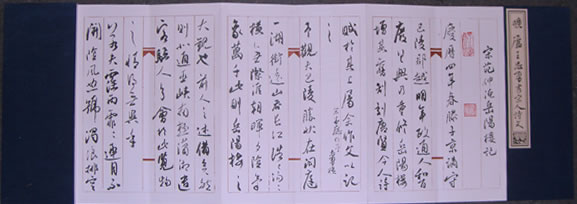 宋范仲淹岳陽樓記
慶曆四年春滕子京謫守
巴陵郡越明年政通人和百
廢具興乃重修岳陽樓
增其舊制刻唐賢今人詩
賦於其上屬余作文以記
之
予觀夫巴陵勝狀在洞庭
一湖銜遠山吞長江浩浩湯湯
橫無際涯朝暉夕陰氣
象萬千此則岳陽樓之
大觀也前人之述備矣然
則北通巫峽南極瀟湘遷
客騷人多會於此覽物
之情得無異乎
若夫霪雨霏霏連月不
開陰風怒號濁浪排空